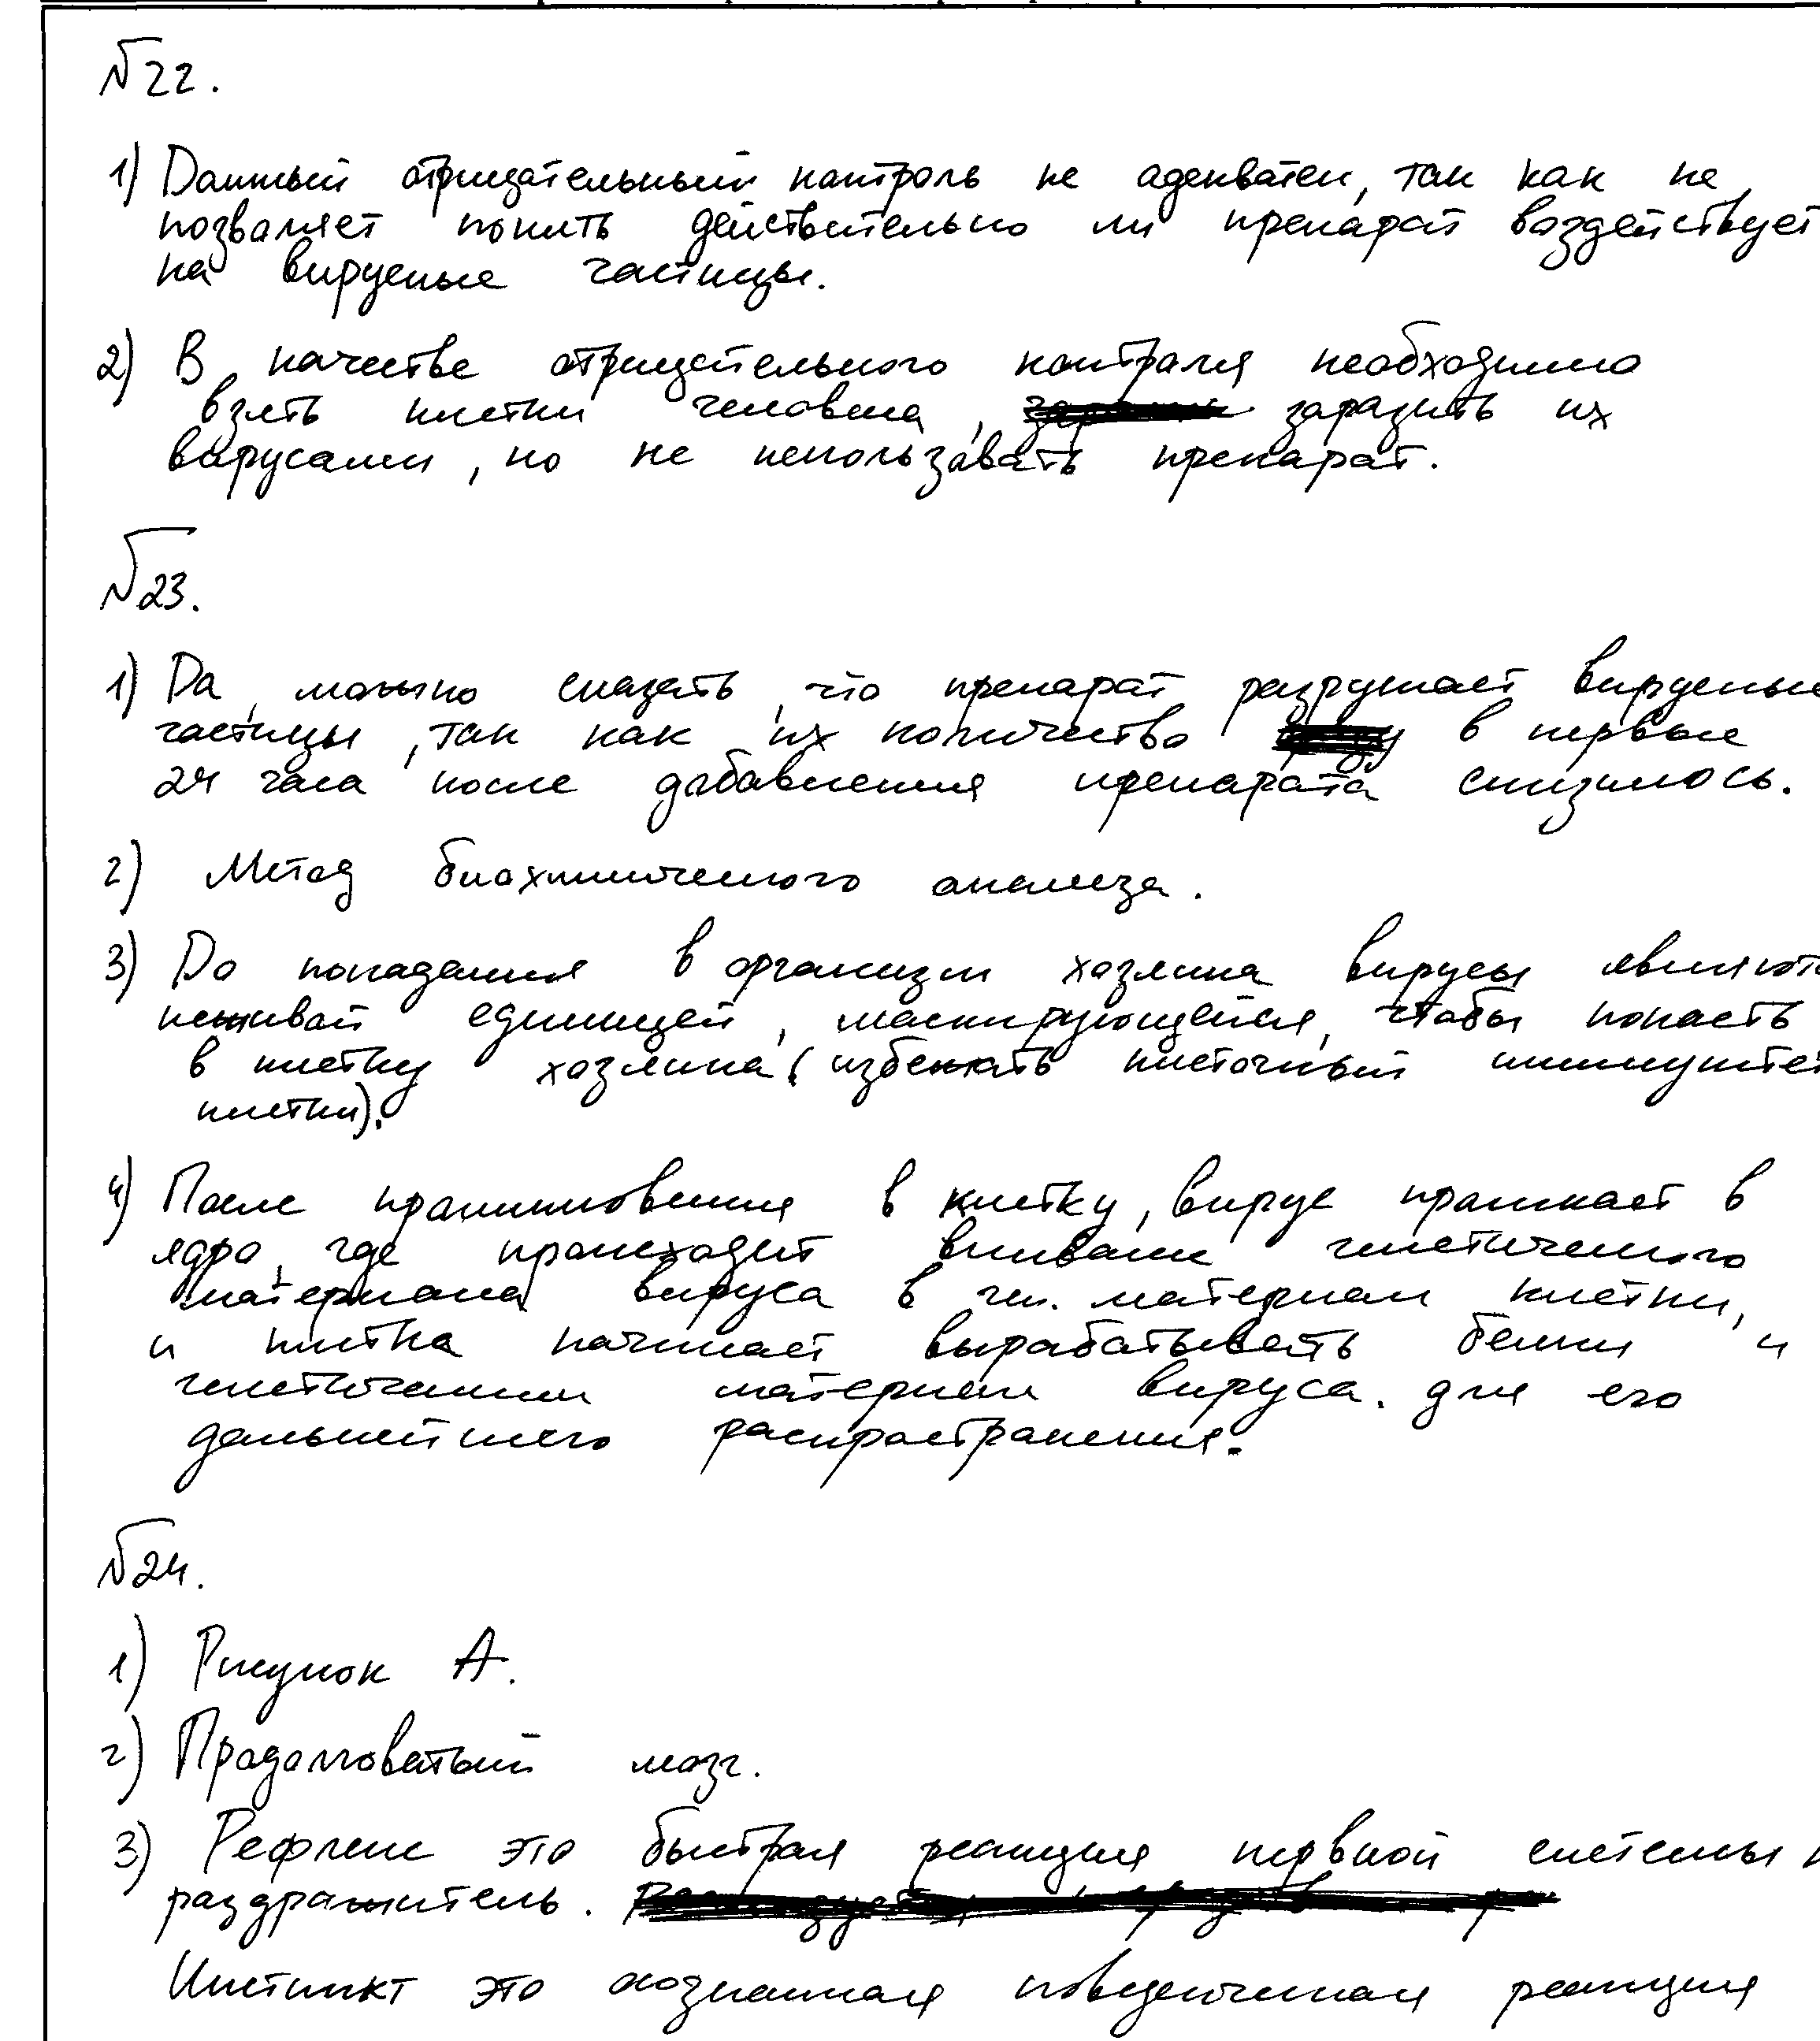 №22.
1) Данный отрицательный контроль не адекватен, так как не
позволяет понять действительно ли препарат воздействует
на вирусные частицы.
2) В качестве отрицательного контроля необходимо
взять клетки человека, заразить их
вирусами, но не использовать препарат.
№23.
1) Да, можно сказать, что препарат разрушает вирусные
частицы, так как их количество в первые
24 часа после добавления препарата снизилось.
2) Метод биохимического анализа.
3) До попадания в организм хозяина вирусы являютс
неживой единицей, маскирующейся, чтобы попасть
в клетку хозяина (избежать клеточный иммунитет
клетки).
4) После проникновения в клетку, вирус проникает в
ядро, где происходит вшивание генетического
материала вируса в ген. материал клетки,
и клетка начинает вырабатывать белки и
генетический материал вируса. для его
дальнейшего распространения.
№24.
1) Рисунок А.
2) Продолговатый мозг.
3) Рефлекс это быстрая реакция нервной системы н
раздражитель.
Инстинкт это осознанная поведенческая реакция